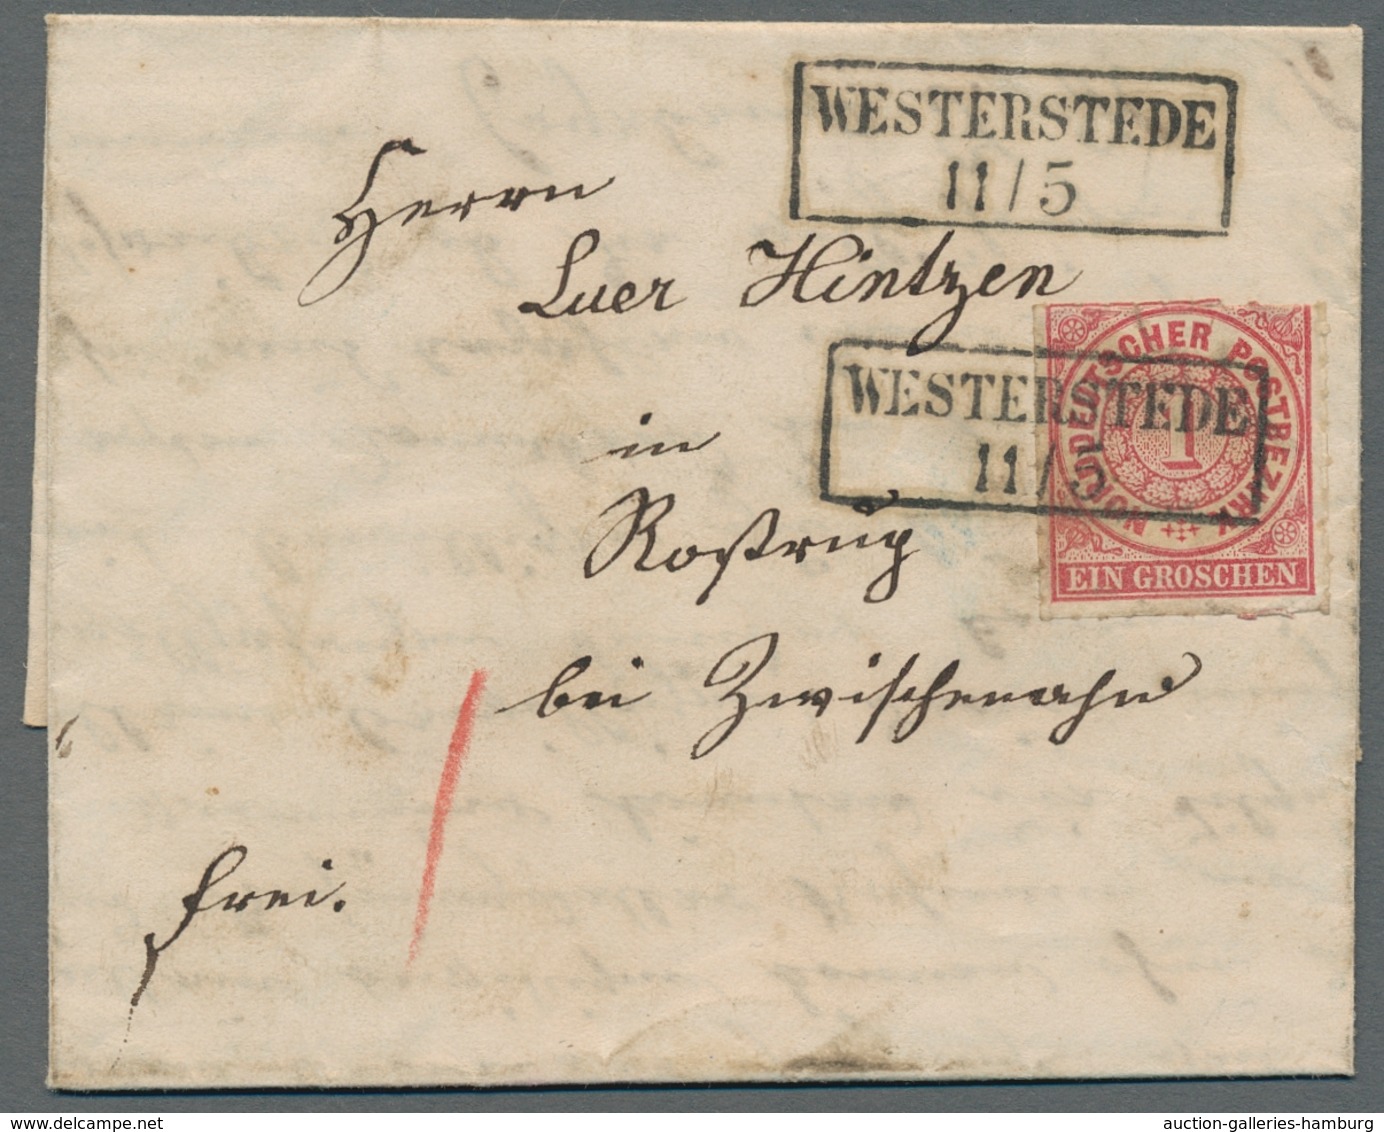 WESTERSTEDE
11/5
Herrn
Luer Hintzen
NORDDEUTSCHER POSTBEZIRK
1
EIN GROSCHEN
WESTERSTEDE
11/5
in
Rostrup
bei Zwischenahn
frei.
www.delcampe.net
auction-galleries-hamburg